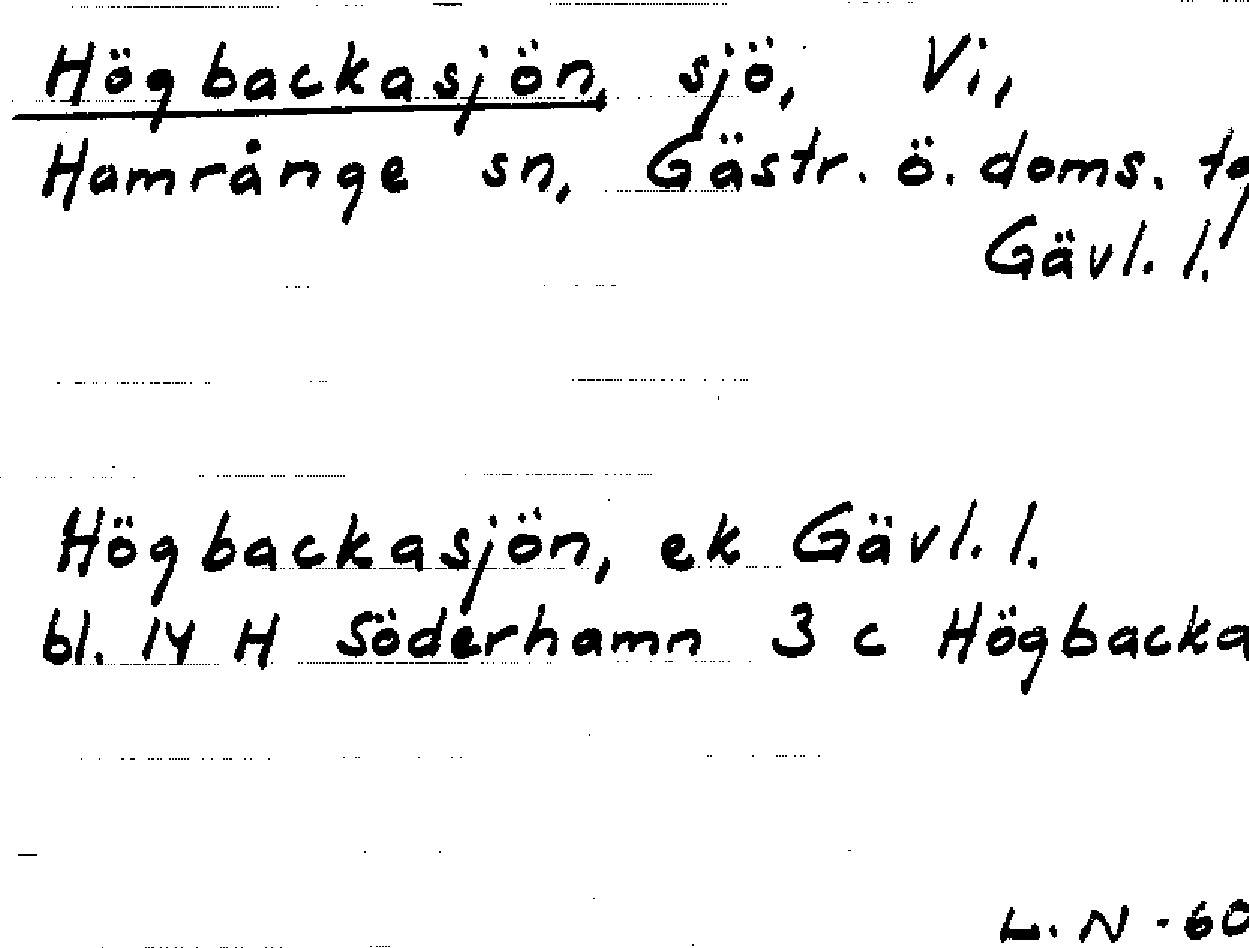 Högbackasjön, sjö, Vi,
Hamrånge sn, Gästr. ö. doms. tg
Gävl. l.
Högbackasjön, ek Gävl. l.
bl. 14 H Söderhamn 3 c Högbacka
L. N - 60